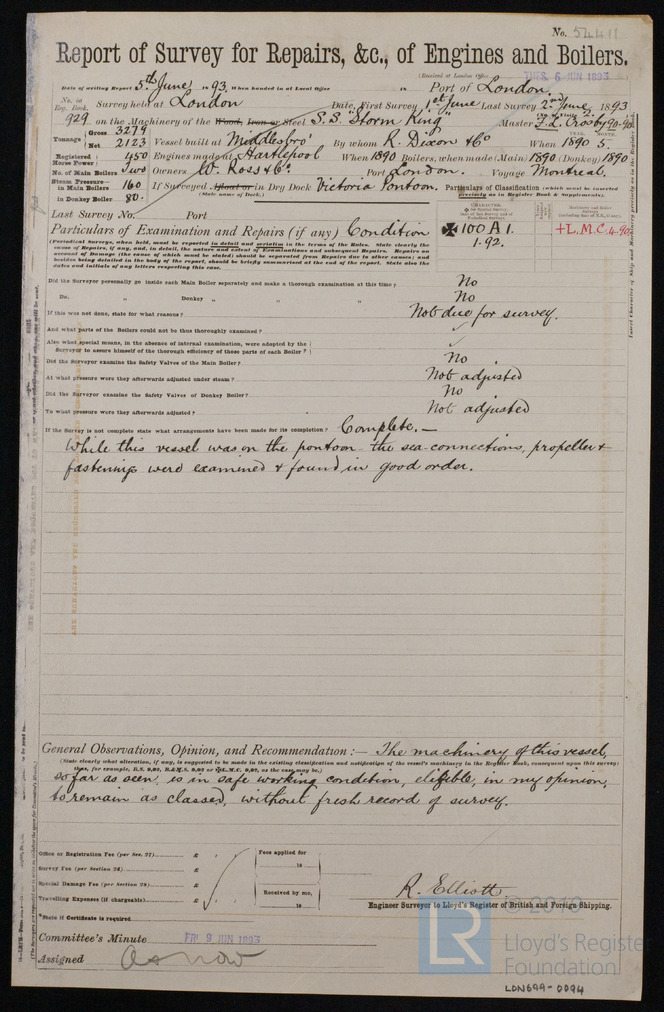 No. 54411
Report of Survey for Repairs, &c., of Engines and Boilers.
(Received at London Office TUES. 6 JUN 1893
Date of writing Report 5th June 1893. When handed in at Local Office 18 Port of London.
No. in Reg. Book. Survey held at London Date, First Survey 1st June Last Survey 2nd June, 1893
929 on the Machinery of the Wood, Iron or Steel S.S. "Storm King" Master F. L. Crosby 90-90
Tonnage Gross 3279 Net 2123 Vessel built at Middlesbro' By whom R. Dixon & Co When 1890 5.
YEAR. MONTH.
Registered Horse Power 450 Engines made at Hartlepool When 1890 Boilers, when made (Main) 1890 (Donkey) 1890
No. of Main Boilers Two Owners W. Ross & Co. Port London. Voyage Montreal.
Steam Pressure— in Main Boilers 160 If Surveyed Afloat or in Dry Dock Victoria Pontoon. Particulars of Classification (which must be inserted precisely as in Register Book & Supplements).
in Donkey Boiler 80. (State name of Dock.)
Last Survey No. Port
Particulars of Examination and Repairs (if any) Condition
100 A 1. 1.92.
+L.M.C. 4.90
(Periodical Surveys, when held, must be reported in detail and seriatim in the terms of the Rules. State clearly the
cause of Repairs, if any, and, in detail, the nature and extent of Examinations and subsequent Repairs. Repairs on
account of Damage (the cause of which must be stated) should be separated from Repairs due to other causes; and
besides being detailed in the body of the report, should be briefly summarised at the end of the report. State also the
dates and initials of any letters respecting this case.
Did the Surveyor personally go inside each Main Boiler separately and make a thorough examination at this time? No
Do. Donkey " " " No
If this was not done, state for what reasons? Not due for survey.
And what parts of the Boilers could not be thus thoroughly examined?
Also what special means, in the absence of internal examination, were adopted by the
Surveyor to assure himself of the thorough efficiency of those parts of each Boiler?
Did the Surveyor examine the Safety Valves of the Main Boiler? No
At what pressure were they afterwards adjusted under steam? Not adjusted
Did the Surveyor examine the Safety Valves of Donkey Boiler? No
To what pressure were they afterwards adjusted? Not adjusted
If the Survey is not complete state what arrangements have been made for its completion? Complete.—
While this vessel was on the pontoon the sea-connections, propeller &
fastenings were examined & found in good order.
General Observations, Opinion, and Recommendation:— The machinery of this vessel,
(State clearly what alteration, if any, is suggested to be made in the existing classification and notification of the vessel's machinery in the Register Book, consequent upon this survey;
thus, for example, B.S. 9,92, B.&M.S. 9,92 or L.M.C. 9,92, as the case may be.)
so far as seen, is in safe working condition, eligible, in my opinion,
to remain as classed, without fresh record of survey.
Office or Registration Fee (per Sec. 27) £
Fees applied for
Survey Fee (per Section 28) £
18
Special Damage Fee (per Section 28) £
Received by me,
Travelling Expenses (if chargeable) £
18
R. Elliott
Engineer Surveyor to Lloyd's Register of British and Foreign Shipping.
*State if Certificate is required
Committee's Minute FRI 9 JUN 1893
Assigned As now
LR © 2018
Lloyd's Register
Foundation
LDN699-0094